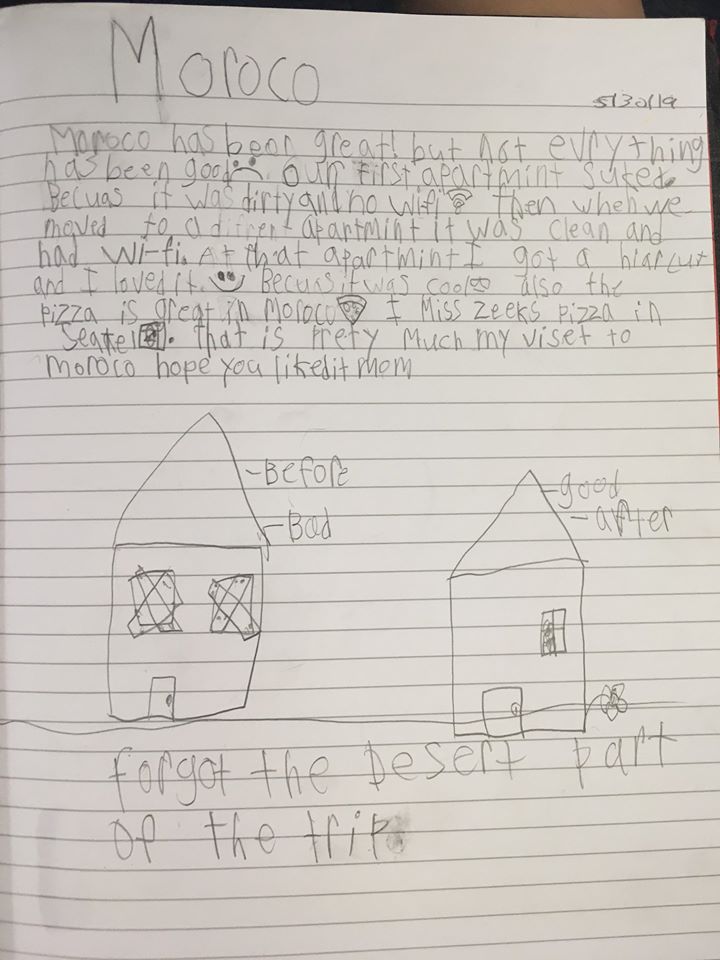 Moroco
5/30/19
Moroco has been great! but not evrything
has been good. our first apartmint suked.
Becuas it was dirty and no wifi then when we
moved to a difrent apartmint it was clean and
had Wi-fi. At that apartmint I got a hiarcut
and I loved it. Becuas it was cool also the
pizza is great in Moroco I Miss Zeeks pizza in
Seatel. that is prety Much my viset to
moroco hope you liked it mom
-Before
-Bad
-good
-after
forgot the Desert part
of the trip.